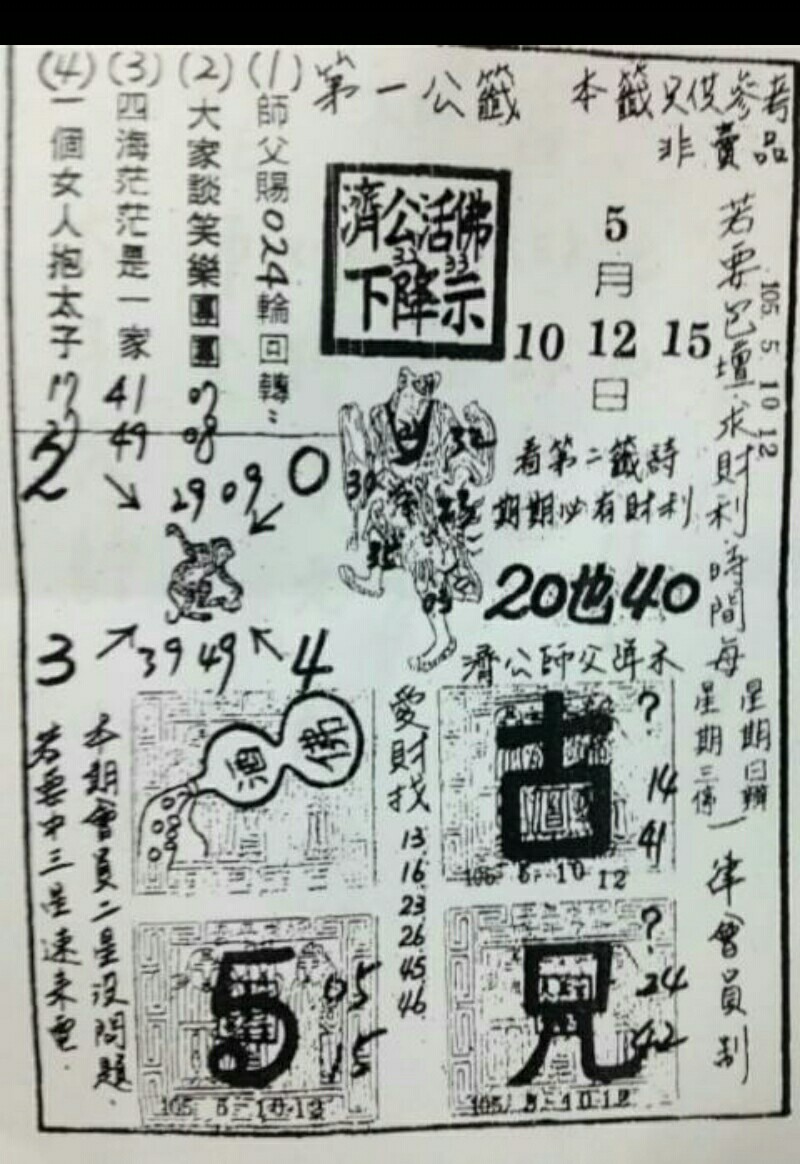 第一公籤
本籤只供參考
非賣品
(1)師父賜024輪回轉:
(2)大家談笑樂團團
07
08
(3)四海茫茫是一家
41
49
(4)一個女人抱太子
17
濟公活佛
下降示
33
5
月
10 12 15
日
105 5 10 12
若要包壇求財利時間每
星期日班
星期三停
一律會員制
看第二籤詩
期期必有財利
20也40
2
0
29 09
39 49
3
4
32
35
濟公師父降示
酒
佛
愛財找
13
16
23
26
45
46
古
?
14
41
105 5-10 12
5
05
15
105 5-10.12
兄
?
24
42
105 5-10 12
本期會員二星沒問題.
若要中三星速來電.